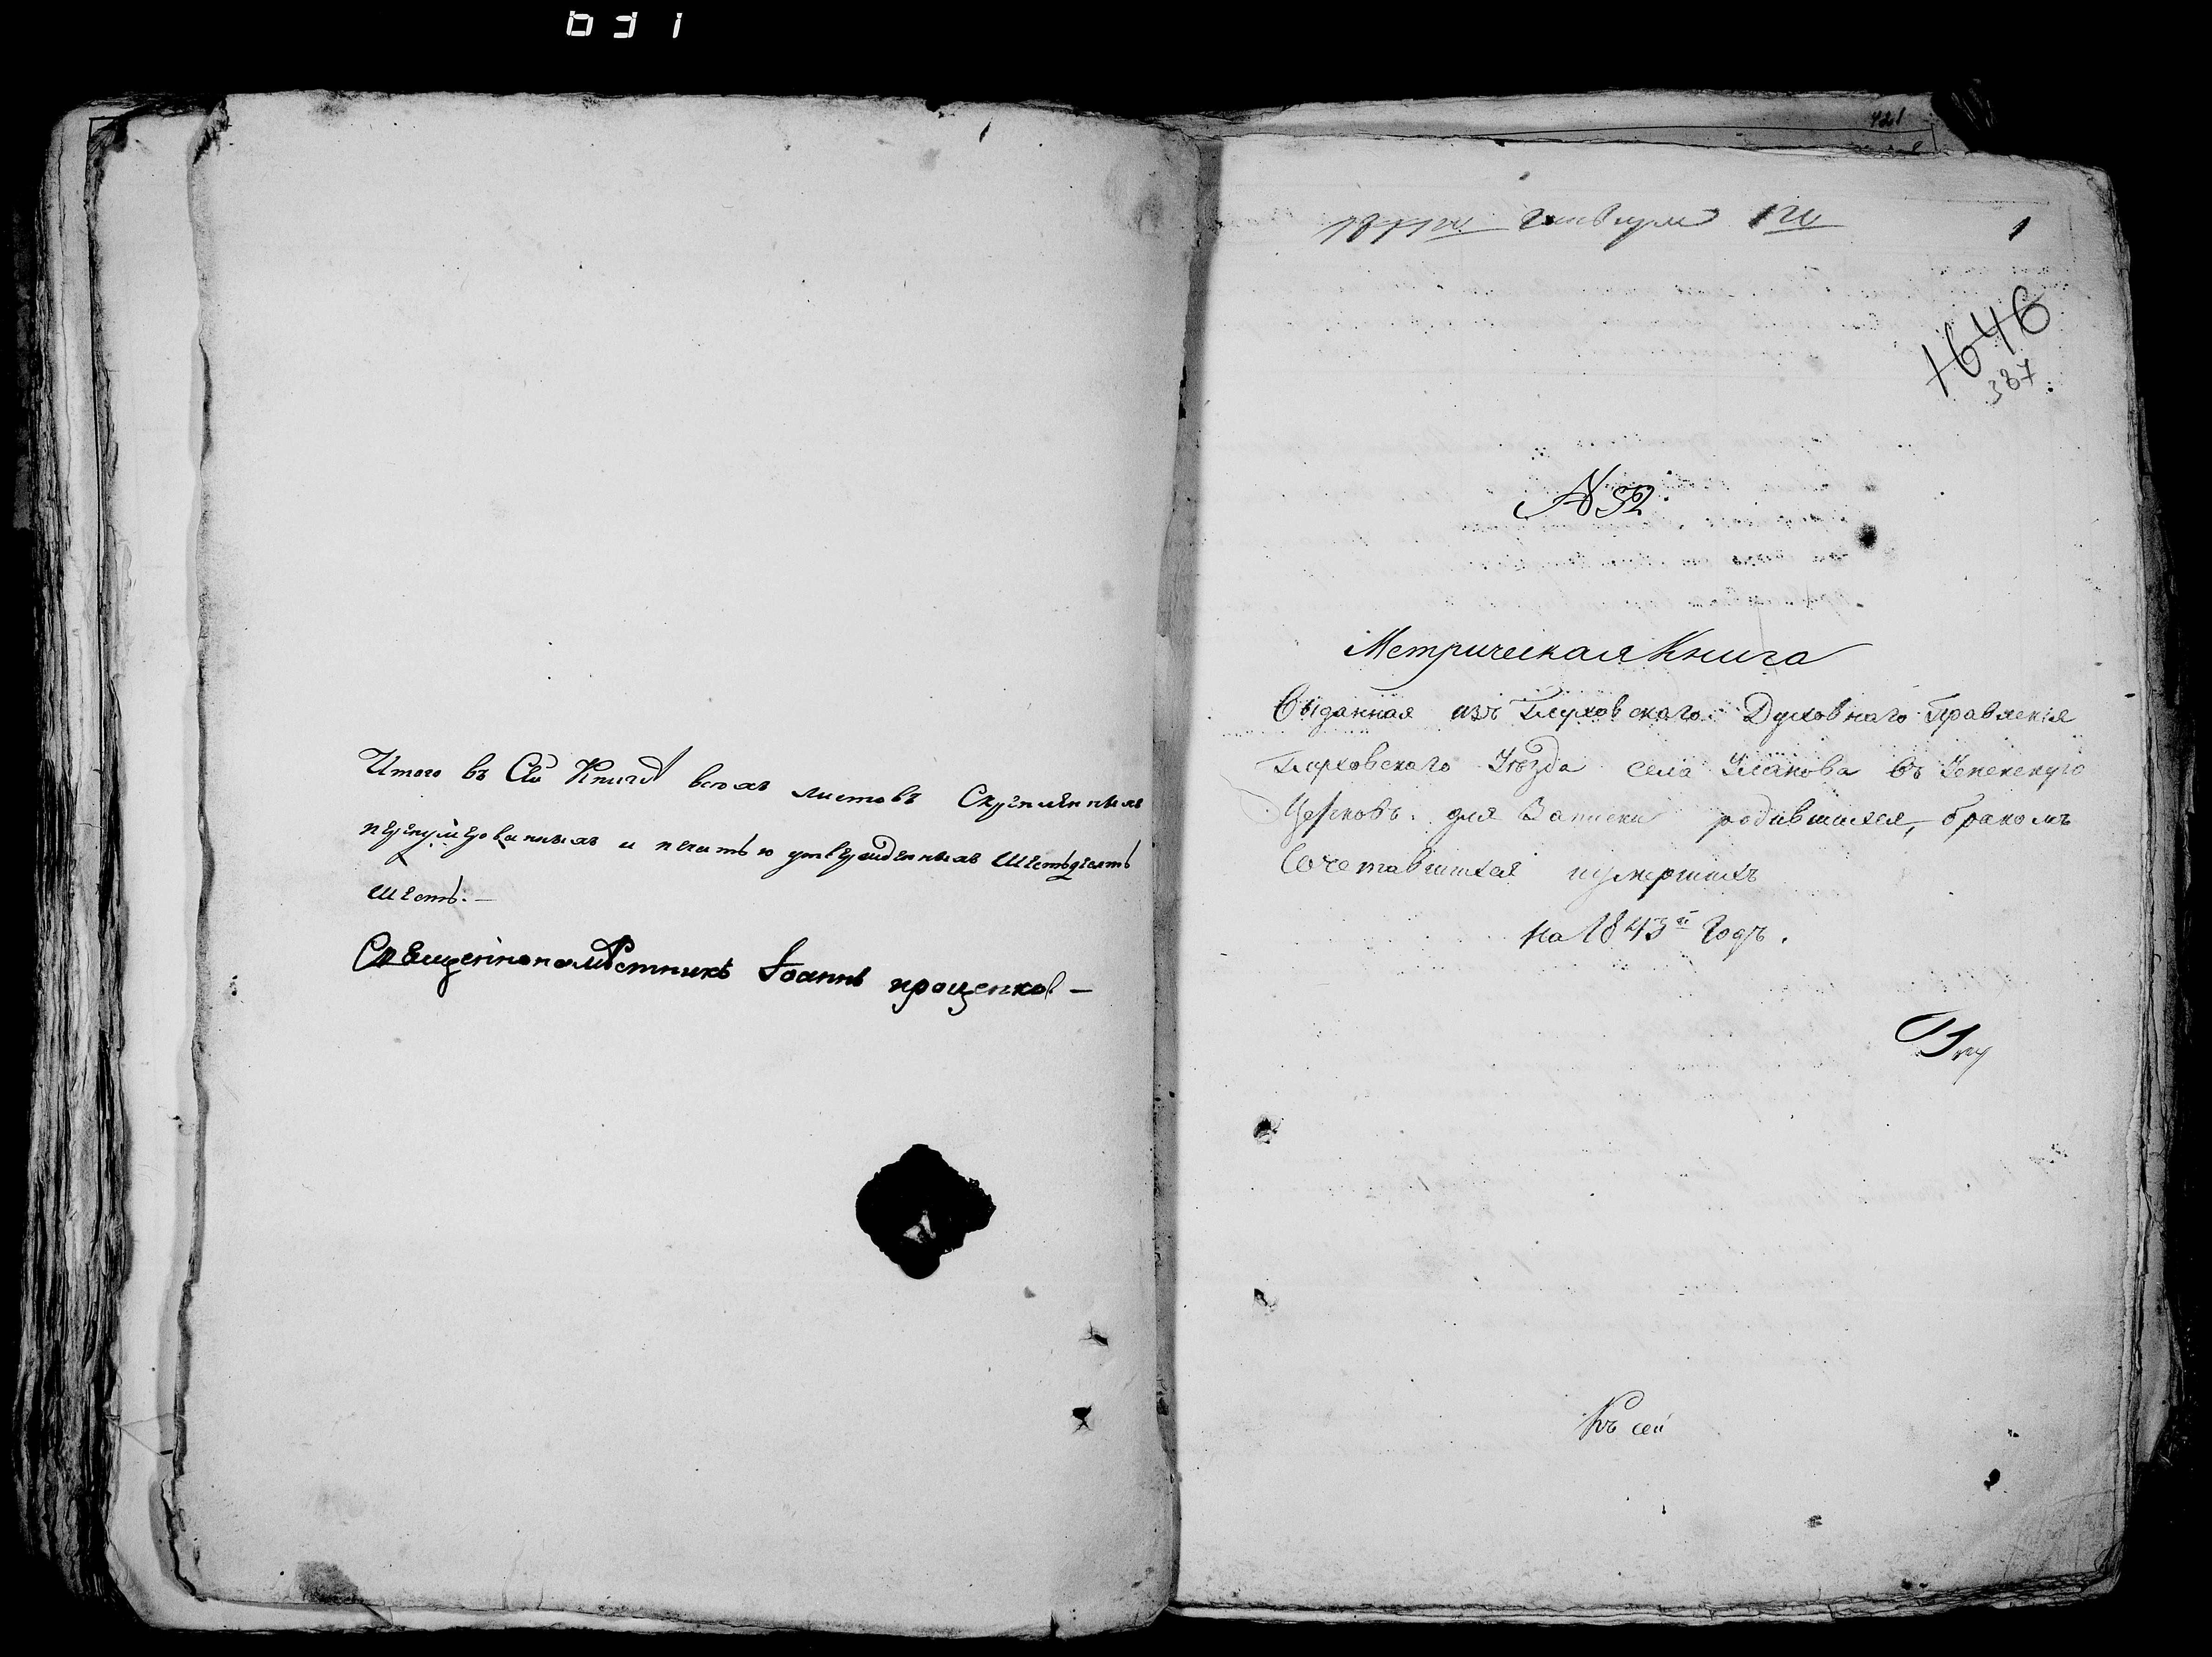 031
Итого въ Сей Книгѣ всѣхъ листовъ Скрепленныхъ
перенумерованныхъ и печатью утвержденныхъ шестьдесятъ
шесть.—
Священнонамѣстникъ Іоаннъ проценков—
421
генваря 1го
1
1646
387
№ 52.
Метрическая Книга
Выданная изъ Глуховскаго Духовнаго Правленія
Глуховскаго Уѣзда села Уланова въ Успенскую
Церковь для Записки родившихся, бракомъ
Сочетавшихся и умершихъ
на 1843й Годъ.
Къ сей